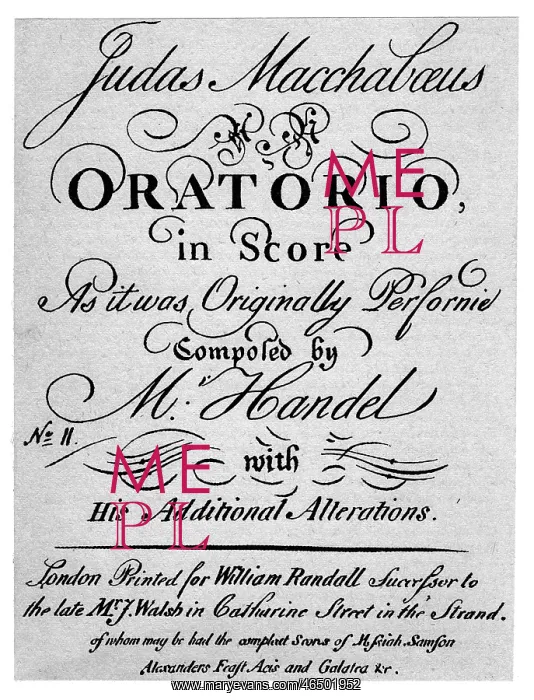 Judas Macchabæus
AN
ORATORIO,
in Score
As it was Originally Perform'd
Composed by
Mr. Handel
No. 11.
with
His Additional Alterations.
London Printed for William Randall Successor to
the late Mr. J. Walsh in Catharine Street in the Strand.
of whom may be had the compleat Scores of Messiah. Samson
Alexanders Feast. Acis and Galatea &c.
ME
PL
ME
PL
www.maryevans.com/46501952